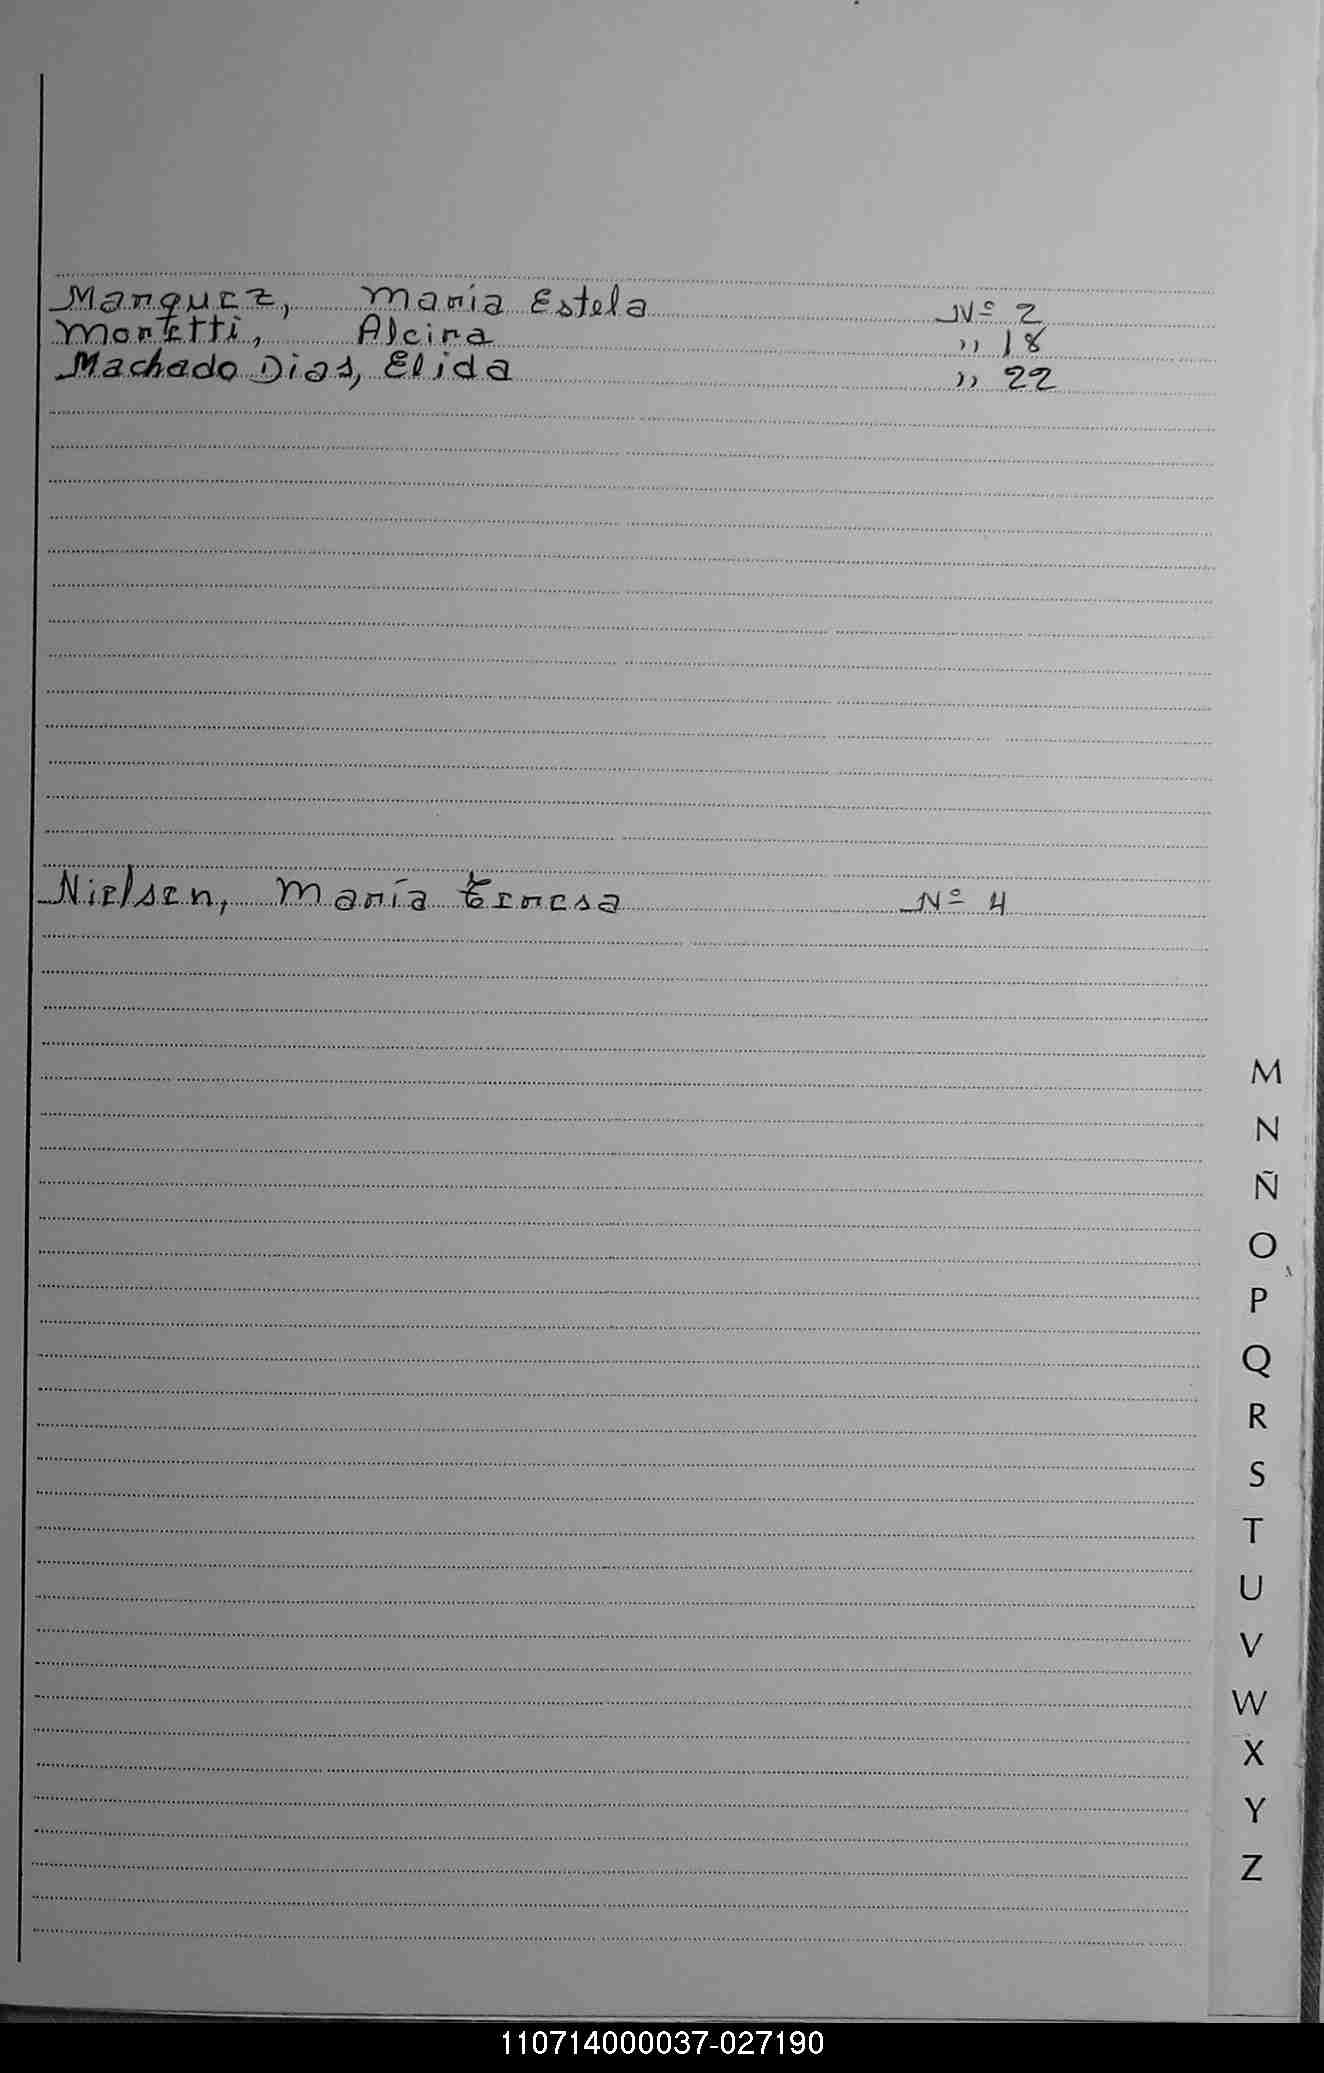 Marquez, María Estela Nº 2
Moretti, Alcira " 18
Machado Dias, Elida " 22
Nielsen, María Teresa Nº 4
M
N
Ñ
O
P
Q
R
S
T
U
V
W
X
Y
Z
110714000037-027190